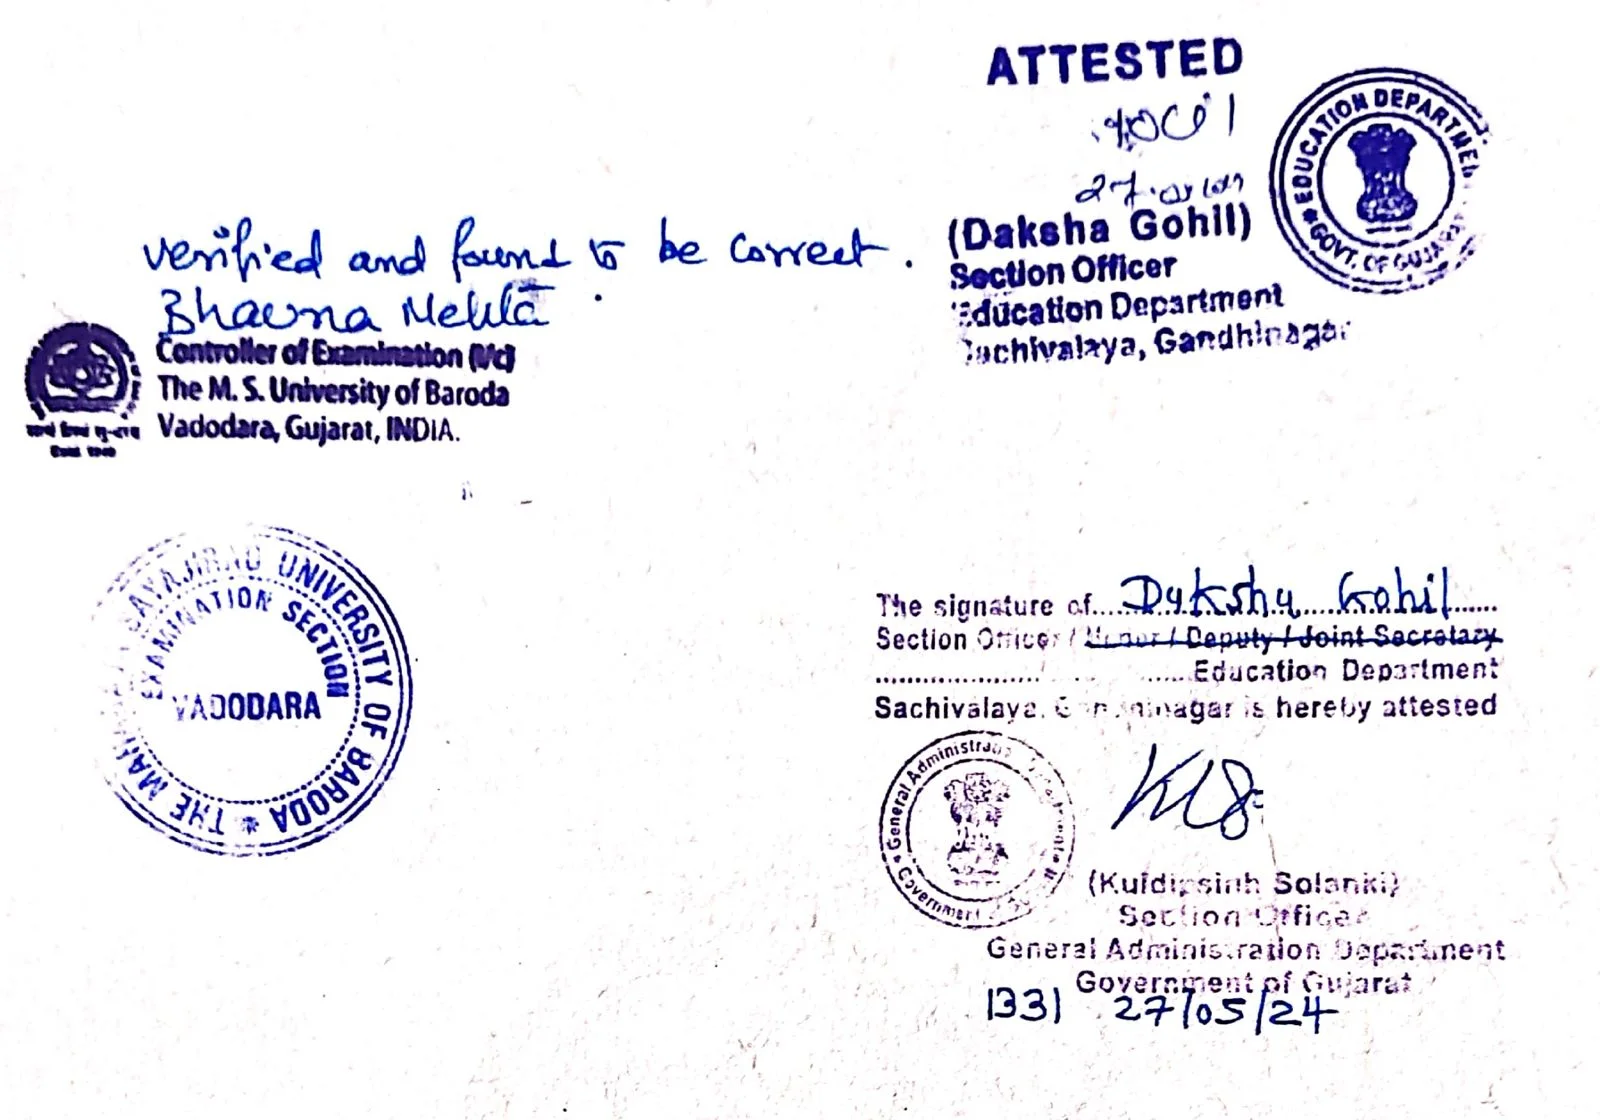 ATTESTED
(Daksha Gohil)
Section Officer
Education Department
Sachivalaya, Gandhinagar
EDUCATION DEPARTMENT
GOVT. OF GUJARAT
verified and found to be correct.
Bhavna Mehta
Controller of Examination (I/c)
The M. S. University of Baroda
Vadodara, Gujarat, INDIA.
THE MAHARAJA SAYAJIRAO UNIVERSITY OF BARODA
EXAMINATION SECTION
VADODARA
The signature of Daksha Gohil
Section Officer / Under / Deputy / Joint Secretary
Education Department
Sachivalaya, Gandhinagar is hereby attested
General Administration Department
Government of
(Kuldipsinh Solanki)
Section Officer
General Administration Department
Government of Gujarat
1331 27/05/24